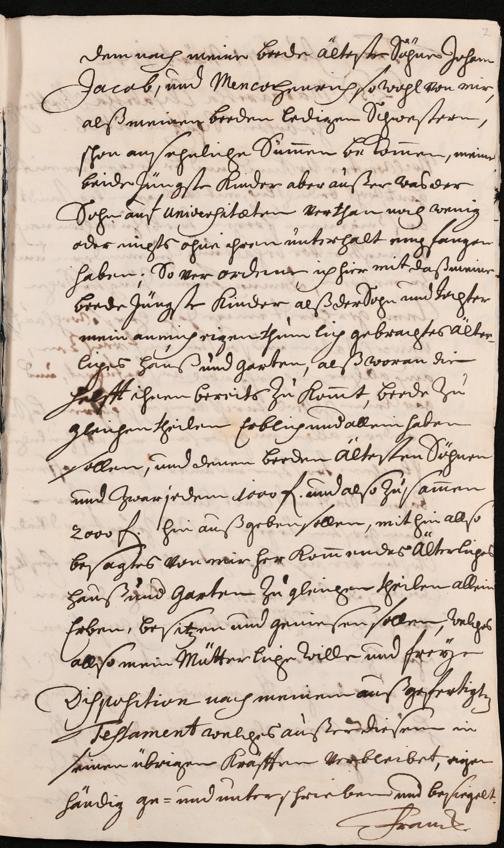 Dem nach meine beede älteste Söhne Johann
Jacob, und Mencohenrich so wohl von mir,
alß meinen beeden ledigen Schwestern,
schon ansehnliche Summen bekommen, meine
beide Jüngste Kinder aber außer was der
Sohn auf Universitæten verthan noch wenig
oder nichts ohne ihren unterhalt empfangen
haben; So verordene ich hiermit daß meine
beede Jüngste Kinder alß der Sohn und Tochter
mein an mich eigenthümlich gebrachtes Älter-
liches Hauß und Garten, alß woran die
helfft ihnen bereits zu komt, beede zu
gleichen theilen Erblich und allein haben
sollen, und denen beeden Ältesten Söhnen
und zwar jedem 1000 f. und also zusammen
2000 f. hin auß geben sollen, mithin also
besagtes von mir her kommendes Älterliches
Hauß und Garten zu gleichen theilen allein
Erben, besitzen und geniesen sollen, welches
also mein Mütterliche wille und freÿe
Disposition nach meinem auß gefertigt
Testament welches außer diesem in
seinen übrigen Krafften verbleibet, eigen
händig ge= und unterschrieben und besiegelt.